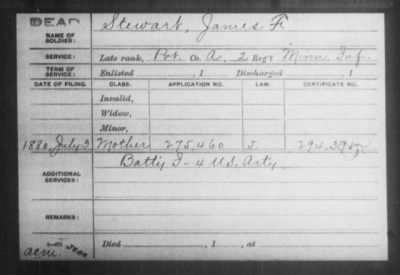 DEAD
NAME OF SOLDIER: Stewart, James F.
SERVICE: Late rank, Pvt. Co. A, 2 Reg't Minn. Inf.
TERM OF SERVICE: Enlisted , 1 Discharged , 1
DATE OF FILING. CLASS. APPLICATION NO. LAW. CERTIFICATE NO.
Invalid,
Widow,
Minor,
1880, July 2 Mother 275,460 J. 294,39
ADDITIONAL SERVICES: Batty I - 4 U.S. Arty.
REMARKS:
Died , 1 , at